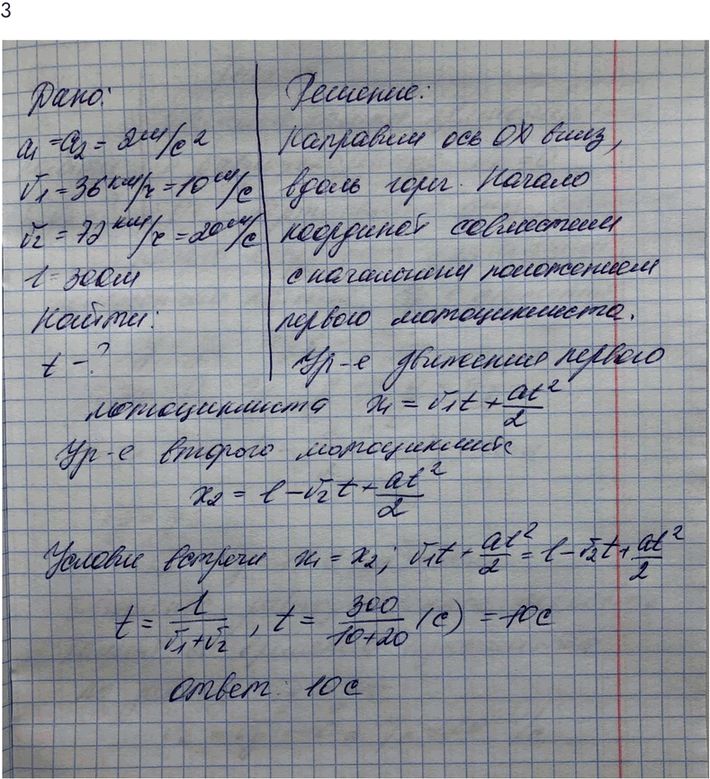 3
Дано:
a₁ = a₂ = 2 м/с²
v₁ = 36 км/ч = 10 м/с
v₂ = 72 км/ч = 20 м/с
l = 300м
Найти:
t - ?
Решение:
Направим ось OX вниз,
вдоль горы. Начало
координат совместим
с начальным положением
первого мотоциклиста.
Ур-е движения первого
мотоциклиста x₁ = v₁t + at²/2
Ур-е второго мотоциклиста
x₂ = l - v₂t + at²/2
Условие встречи x₁ = x₂; v₁t + at²/2 = l - v₂t + at²/2
t = l/(v₁+v₂), t = 300/(10+20) (с) = 10с
ответ: 10с